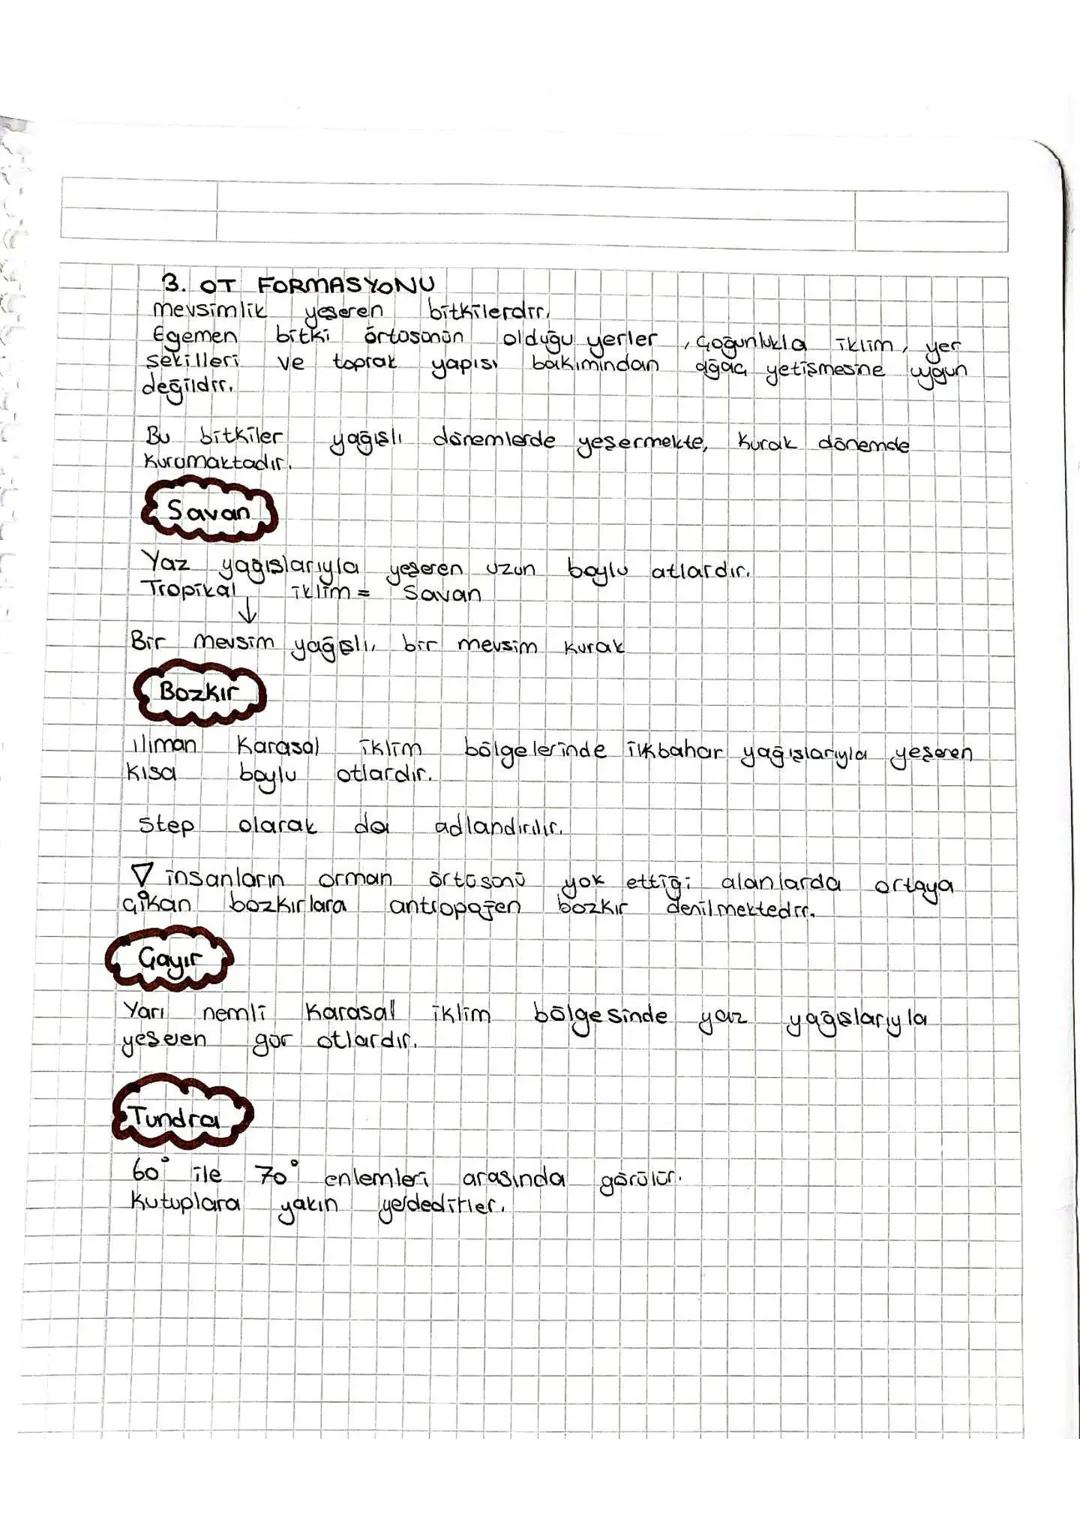 3. OT FORMASYONU
mevsimlik yeşeren bitkilerdir.
Egemen bitki örtüsünün olduğu yerler, çoğunlukla iklim, yer
şekilleri ve toprak yapısı bakımından ağaç yetişmesine uygun
değildir.
Bu bitkiler yağışlı dönemlerde yeşermekte, kurak dönemde
kurumaktadır.
Savan
Yaz yağışlarıyla yeşeren uzun boylu otlardır.
Tropikal iklim = Savan
↓
Bir mevsim yağışlı, bir mevsim kurak
Bozkır
ılıman Karasal iklim bölgelerinde ilkbahar yağışlarıyla yeşeren
kısa boylu otlardır.
Step olarak da adlandırılır.
∇ insanların orman örtüsünü yok ettiği alanlarda ortaya
çıkan bozkırlara antropojen bozkır denilmektedir.
Çayır
Yarı nemli Karasal iklim bölgesinde yaz yağışlarıyla
yeşeren gür otlardır.
Tundra
60° ile 70° enlemleri arasında görülür.
Kutuplara yakın yerdedirler.